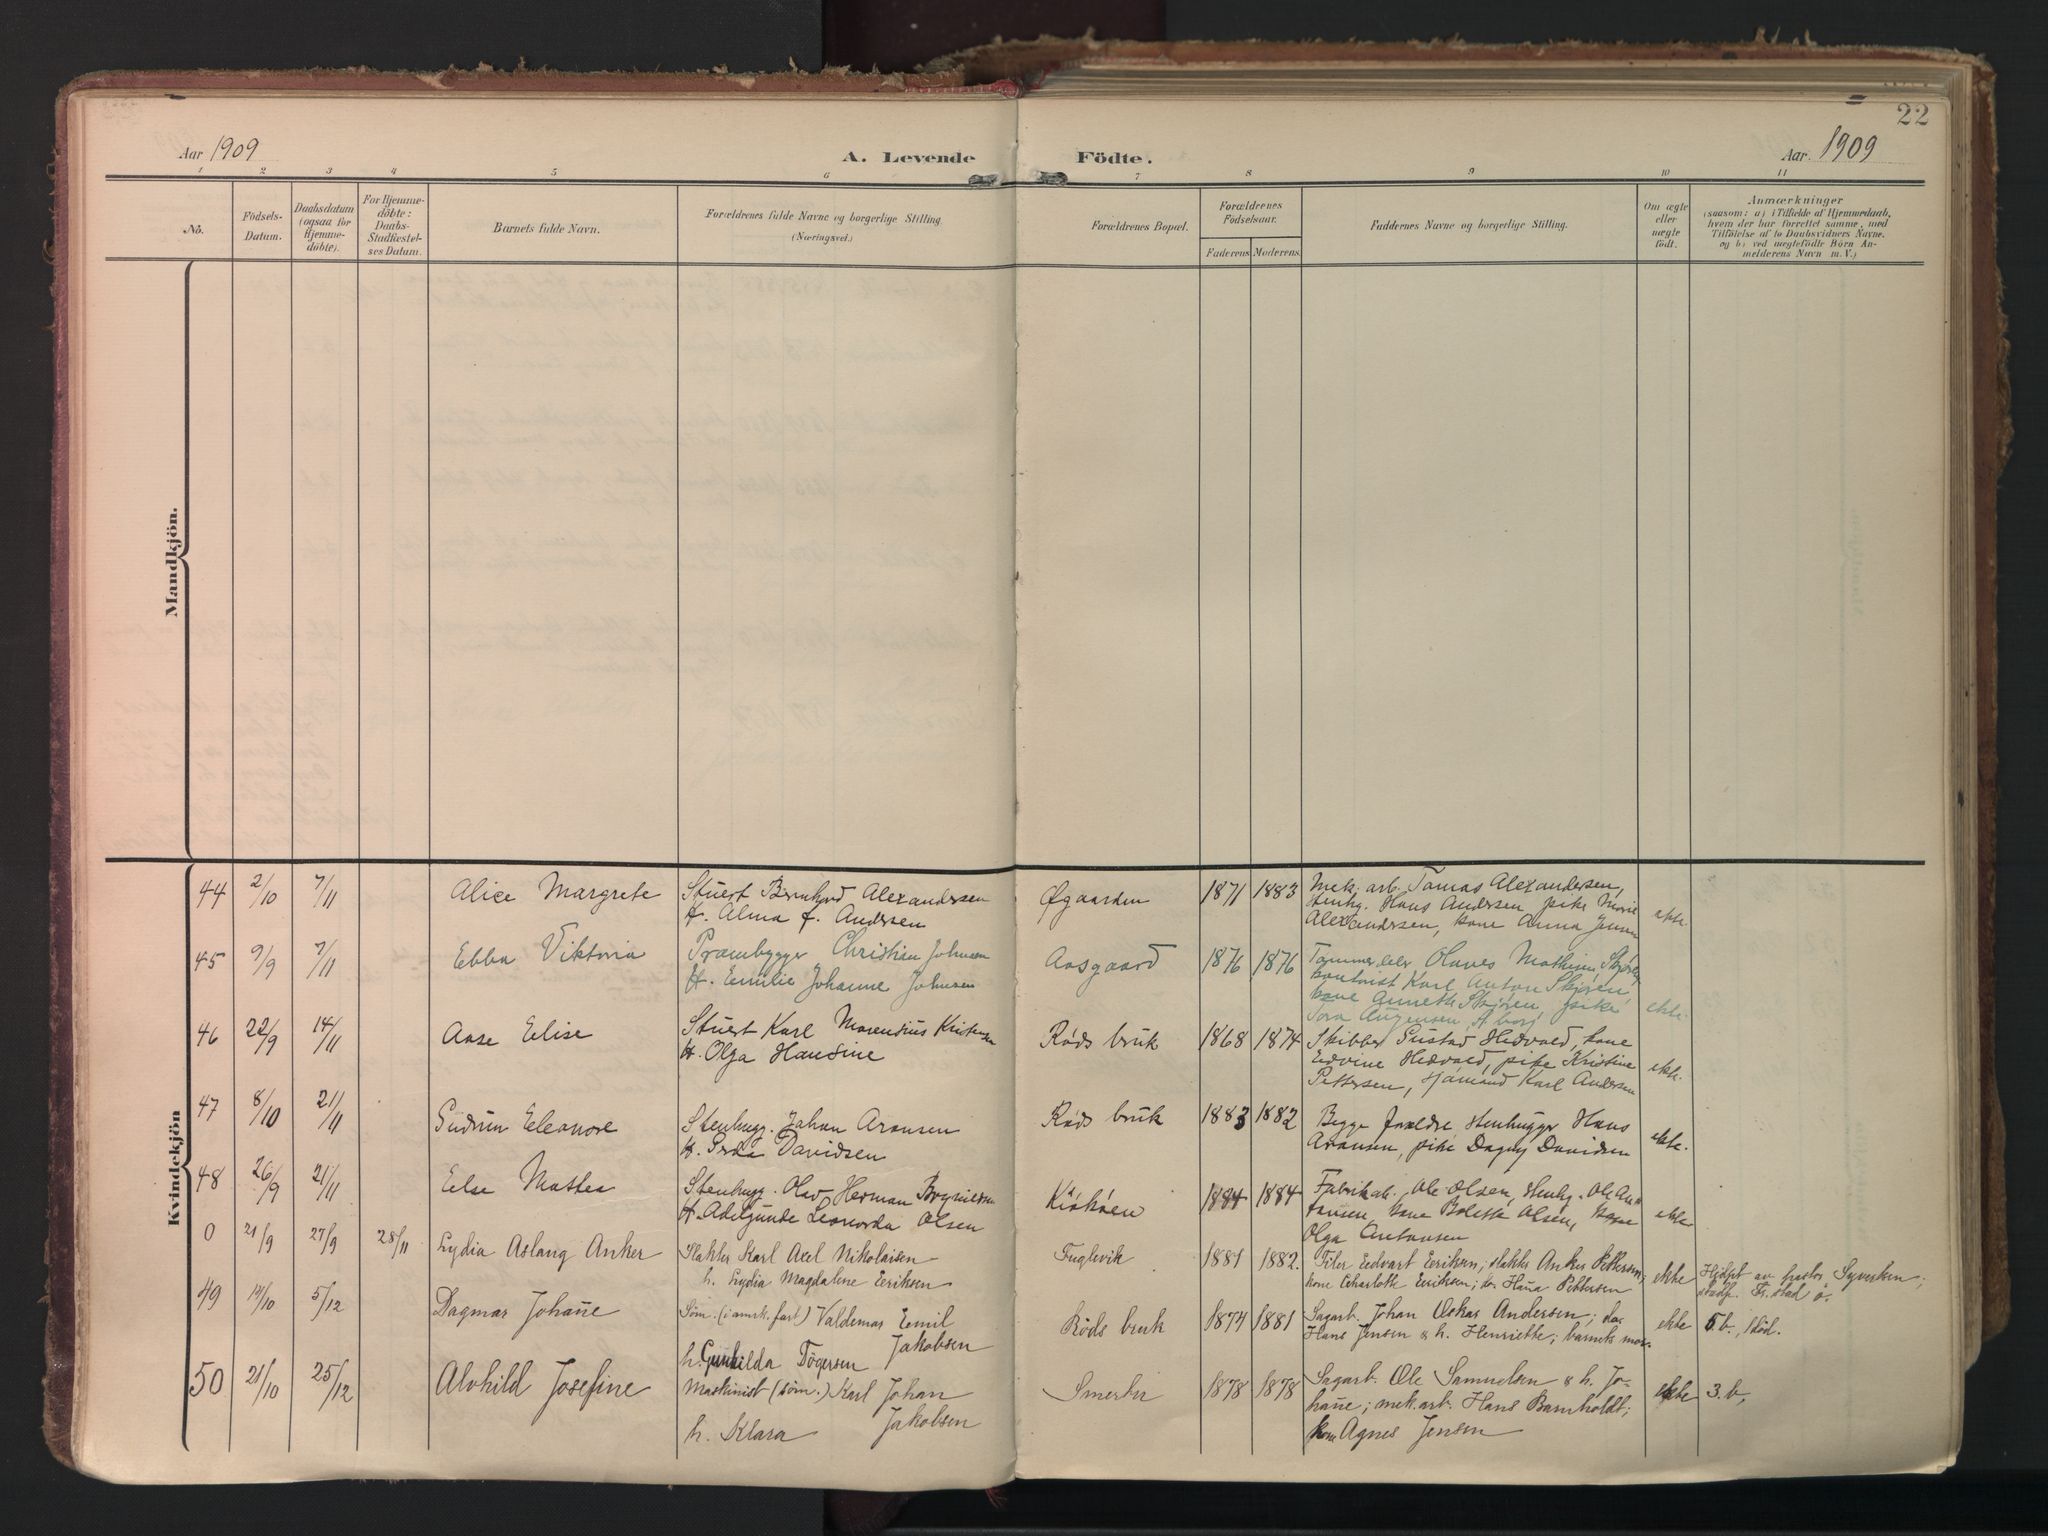 22
Aar 1909
A. Levende
Födte.
Aar. 1909
1 2 3 4 5 6 7 8 9 10 11
No.
Födsels-
Datum.
Daabsdatum
(ogsaa for
Hjemme-
döbte).
For Hjemme-
döbte:
Daabs-
Stadfæstel-
ses Datum.
Barnets fulde Navn.
Forældrenes fulde Navne og borgerlige Stilling
(Næringsvei.)
Forældrenes Bopæl.
Forældrenes
Födselsaar.
Faderens
Moderens.
Faddernes Navne og borgerlige Stilling.
Om ægte
eller
uægte
födt.
Anmærkninger
(saasom: a) i Tilfælde af Hjemmedaab,
hvem der har forrettet samme, med
Tilföielse af to Daabsvidners Navne.
og b) ved uægtefödte Börn An-
melderens Navn m. V.)
Mandkjön.
Kvindekjön
44 2/10 7/11 Alice Margrete
Stuert Bernhard Alexandersen
H. Alma f. Andersen
Øgaarden 1871 1883
Mek. arb. Tomas Alexandersen,
Stenhg. Hans Andersen pike Marie
Alexandersen, kone Anna
ekte.
45 9/9 7/11 Ebba Viktoria
Prambygger Christian Johnsen
H. Emilie Johanne Johnsen
Aasgaard 1876 1876
Olaves Mathisen,
Karl Anton Skjøren
kone Anneth Skjøren, pike
Tora
ekte.
46 22/9 14/11 Aase Elise
Stuert Karl Marendius Kristensen
H. Olga Hansine
Røds bruk 1868 1874
Skibber Gustad Hedvald, kone
Edvine Hedvald, pike Kristine
Pettersen, sjømand Karl Andersen
ekte.
47 8/10 21/11 Gudrun Eleonore
Stenhugg. Johan Aronsen
H. Davidsen
Røds bruk 1883 1882
Begge foreldre stenhugger Hans
Aronsen, pike Dagny Davidsen
ekte.
48 26/9 21/11 Else Mattea
Stenhugg. Olav Herman
H. Adelgunde Leonorda Olsen
1884 1884
Fabrik ab. Ole Olsen, stenhg. Ole An-
tonsen, kone Bolette Olsen, kone
Olga Antonsen
ekte
0 21/9 27/9 28/11 Lydia Aslaug Anker
Slakter Karl Axel Nikolaisen
h. Lydia Magdalene Eriksen
Fuglevik 1881 1882.
Edvart Eriksen; slakter Anker Pettersen;
kone Charlotte Eriksen; do. Hana Pettersen
ekte
Hjdpt av pastor Syvertsen;
stadf. Fr.stad
49 14/10 5/12 Dagmar Johañe
Søm. (i amrk. fart) Valdemar Emil
Jakobsen
h. Gunhilda Tøgersen
Røds bruk 1874 1881
Sagarb. Johan Oskar Andersen; do.
Hans Jensen & h. Henriette; barnets mor.
ekte 5 b., 1 død.
50 21/10 25/12 Alvhild Josefine
Maskinist (søm.) Karl Johan
Jakobsen
h. Klara
Smertu 1878 1878
Sagarb. Ole Samuelsen & h. Jo-
hañe; mek. arb. Hans Barnholdt;
kone Agnes Jensen
ekte 3. b,